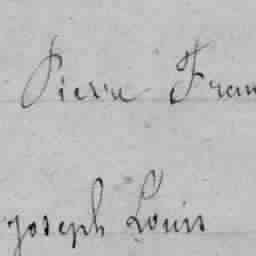 Pierre Fran
joseph Louis